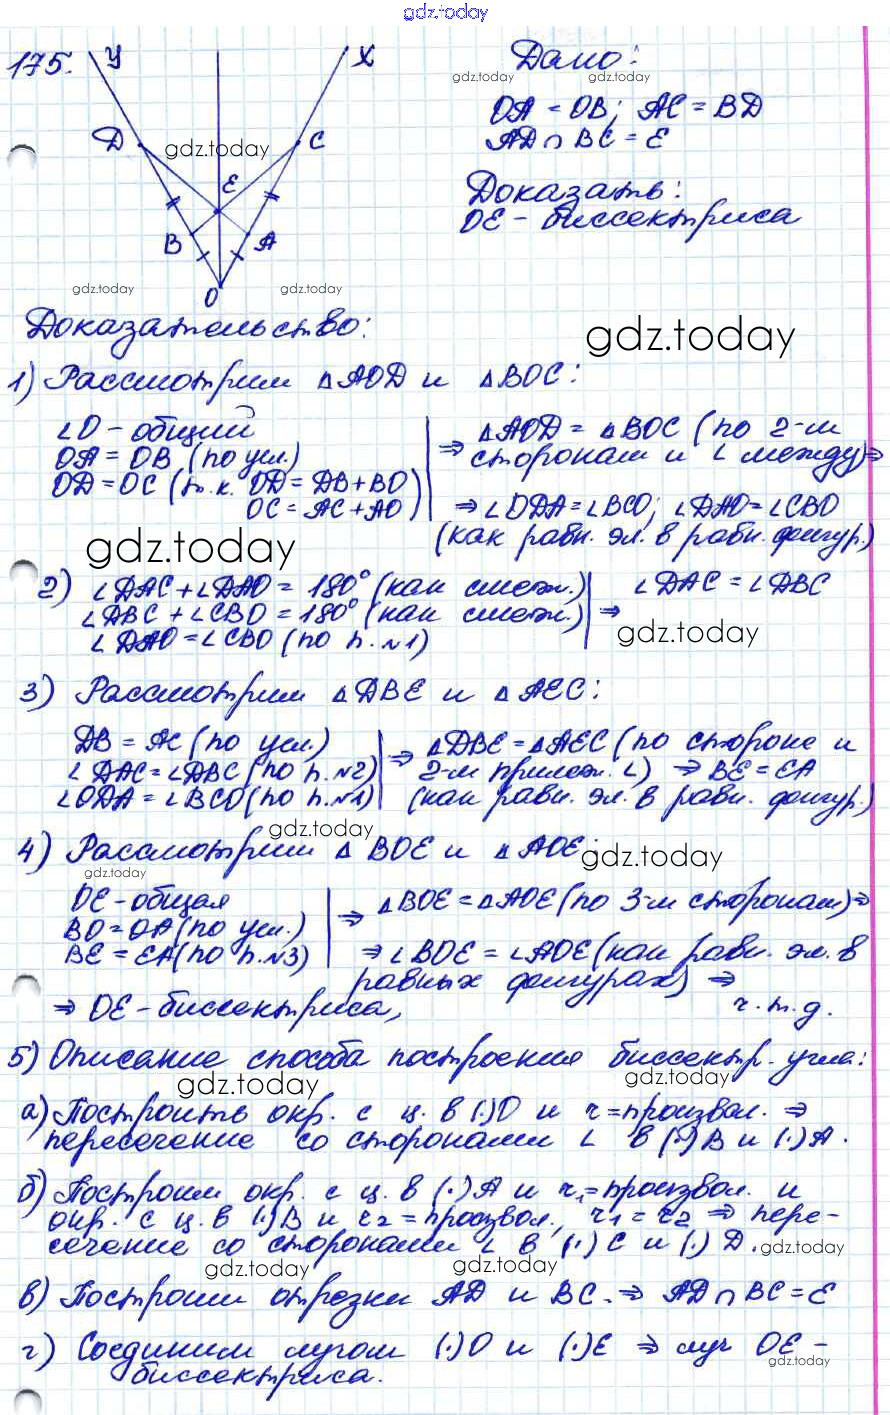 gdz.today
175.
У
X
Дано:
gdz.today
gdz.today
OA = OB; AC = BD
AD ∩ BC = E
D
gdz.today
C
E
B
A
O
Доказать:
OE - биссектриса
gdz.today
gdz.today
Доказательство:
gdz.today
1) Рассмотрим △AOD и △BOC:
∠O - общий
OA = OB (по усл.)
OD = OC (т.к. OD = DB + BO
OC = AC + AO)
⇒ △AOD = △BOC (по 2-м
сторонам и ∠ между) ⇒
⇒ ∠ODA = ∠BCO; ∠DAO = ∠CBO
(как равн. эл. в равн. фигур.)
gdz.today
2) ∠DAC + ∠DAO = 180° (как смеж.)
∠ABC + ∠CBO = 180° (как смеж.)
∠DAO = ∠CBO (по п. №1)
⇒ ∠DAC = ∠ABC
gdz.today
3) Рассмотрим △DBE и △AEC:
DB = AC (по усл.)
∠DAC = ∠ABC (по п. №2)
∠ODA = ∠BCO (по п. №1)
⇒ △DBE = △AEC (по стороне и
2-м прилеж. ∠) ⇒ BE = EA
(как равн. эл. в равн. фигур.)
gdz.today
4) Рассмотрим △BOE и △AOE:
gdz.today
gdz.today
OE - общая
BO = OA (по усл.)
BE = EA (по п. №3)
⇒ △BOE = △AOE (по 3-м сторонам) ⇒
⇒ ∠BOE = ∠AOE (как равн. эл. в
равных фигурах) ⇒
⇒ OE - биссектриса,
ч.т.д.
5) Описание способа построения биссектр. угла:
gdz.today
gdz.today
а) Построить окр. с ц. в (·)O и r = произвол. ⇒
пересечение со сторонами ∠ в (·)B и (·)A.
б) Построим окр. с ц. в (·)A и r₁ = произвол. и
окр. с ц. в (·)B и r₂ = произвол., r₁ = r₂ ⇒ пере-
сечение со сторонами ∠ в (·)C и (·)D.
gdz.today
gdz.today
gdz.today
в) Построим отрезки AD и BC. ⇒ AD ∩ BC = E
г) Соединим лучом (·)O и (·)E ⇒ луч OE -
биссектриса.
gdz.today